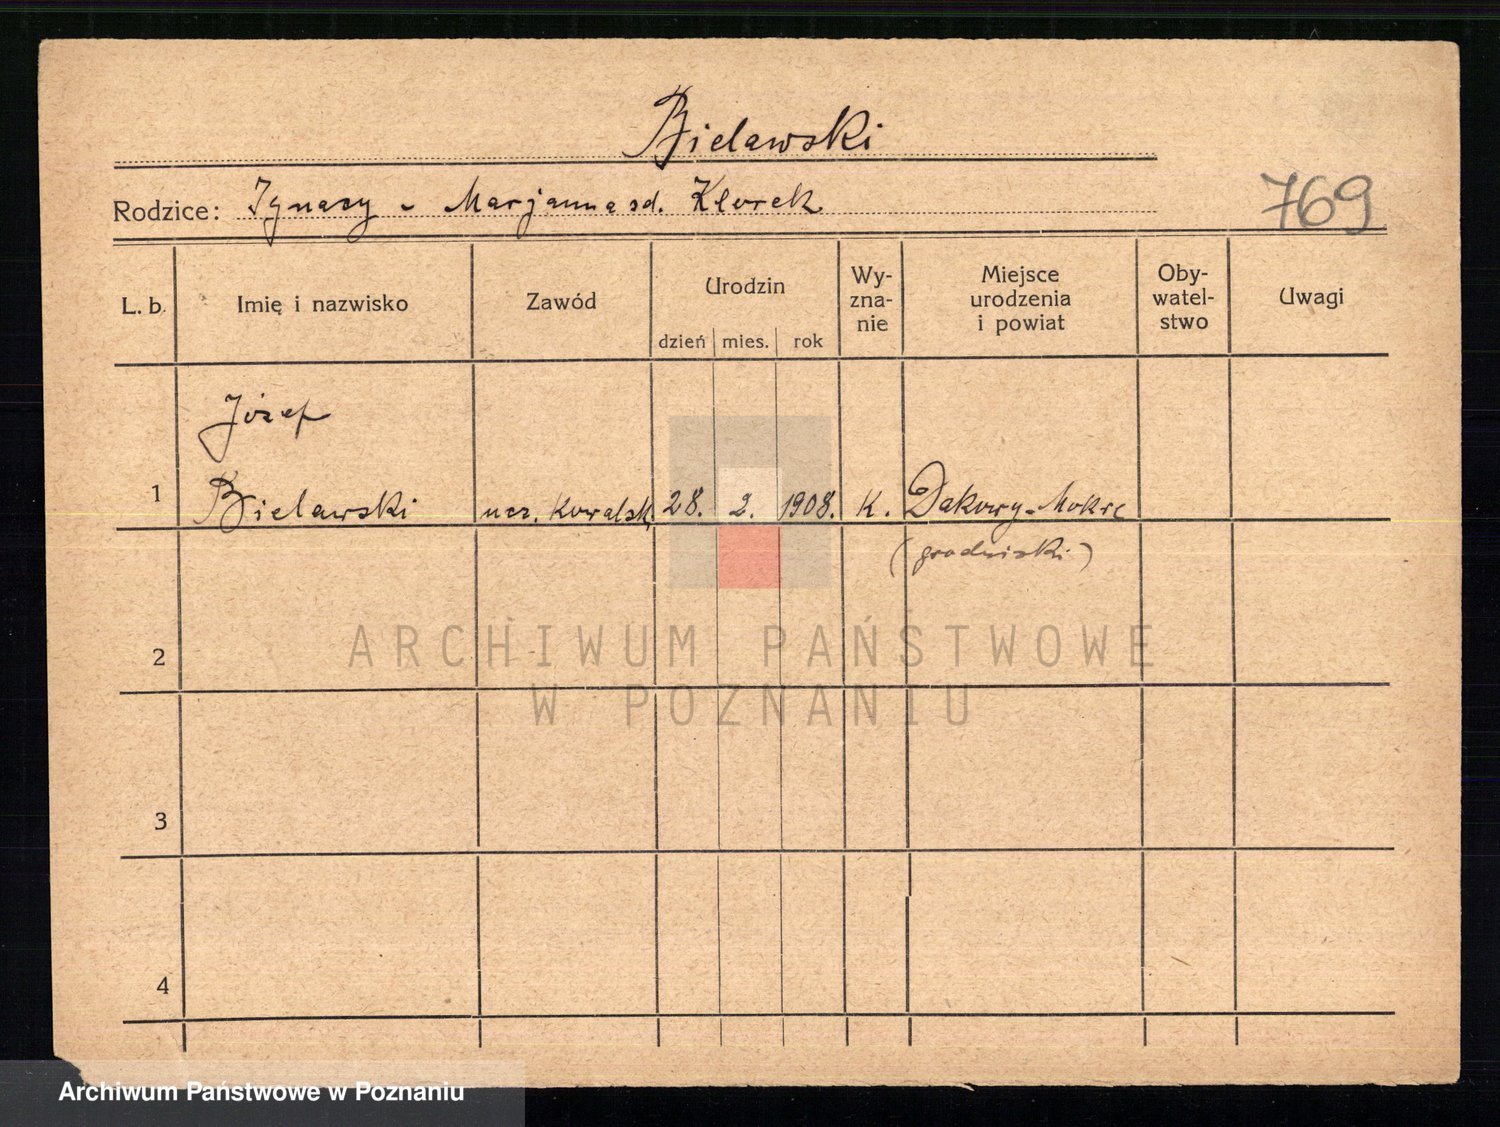 Bielawski
Rodzice: Ignacy - Marjanna zd. Klorek
769
L. b. Imię i nazwisko Zawód Urodzin Wy-zna-nie Miejsce urodzenia i powiat Oby-watel-stwo Uwagi
dzień mies. rok
Józef
1 Bielawski ucz. kowalsk. 28. 2. 1908. K. Dakowy-Mokre
(grodziski)
2
3
4
ARCHIWUM PAŃSTWOWE
W POZNANIU
Archiwum Państwowe w Poznaniu